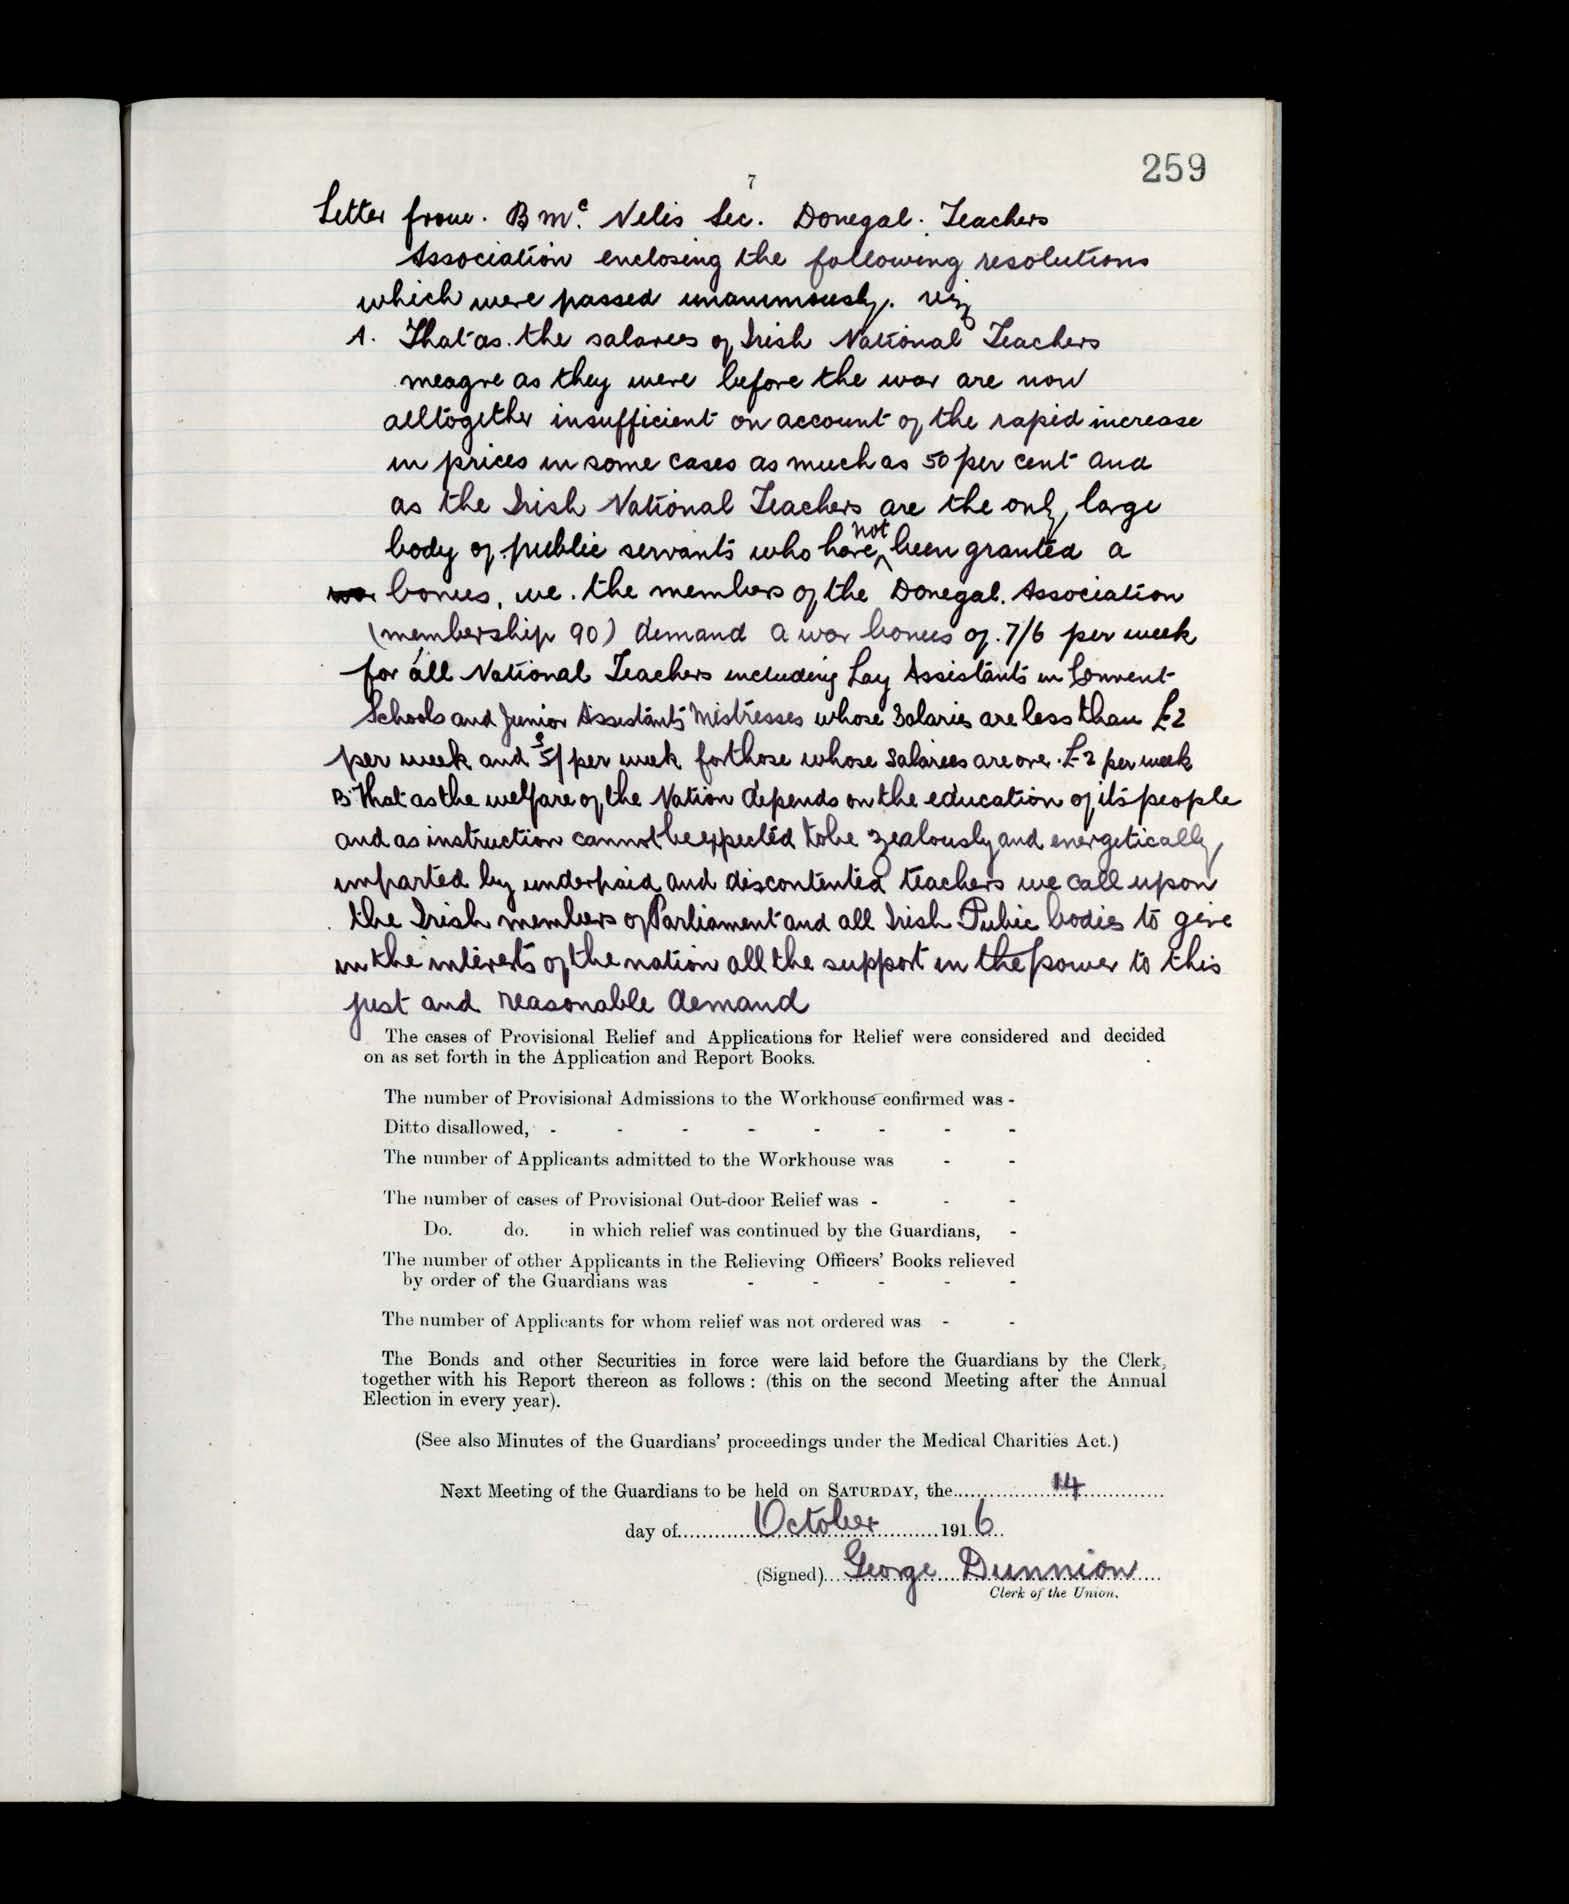 259
7
Letter from. B Mc. Nelis Sec. Donegal. Teachers
Association enclosing the following resolutions
which were passed unanimously. viz
A. That as. the salaries of Irish National Teachers
meagre as they were before the war are now
alltogether insufficient on account of the rapid increase
in prices in some cases as much as 50 per cent and
as the Irish National Teachers are the only large
body of public servants who have not been granted a
bonus, we. the members of the Donegal. Association
(membership 90) demand a war bonus of. 7/6 per week
for all National Teachers including Lay Assistants in Convent
Schools and Junior Assistants Mistresses whose Salaries are less than £2
per week and 5/ per week for those whose Salaries are over. £2 per week
B That as the welfare of the Nation depends on the education of its people
and as instruction cannot be expected to be zealously and energetically
imparted by underpaid and discontented teachers we call upon
the Irish members of Parliament and all Irish Pubic bodies to give
in the interests of the nation all the support in the power to this
just and reasonable demand
The cases of Provisional Relief and Applications for Relief were considered and decided
on as set forth in the Application and Report Books.
The number of Provisional Admissions to the Workhouse confirmed was -
Ditto disallowed, - - - - - - - -
The number of Applicants admitted to the Workhouse was - -
The number of cases of Provisional Out-door Relief was - - -
Do. do. in which relief was continued by the Guardians, -
The number of other Applicants in the Relieving Officers' Books relieved
by order of the Guardians was - - - - -
The number of Applicants for whom relief was not ordered was - -
The Bonds and other Securities in force were laid before the Guardians by the Clerk,
together with his Report thereon as follows : (this on the second Meeting after the Annual
Election in every year).
(See also Minutes of the Guardians' proceedings under the Medical Charities Act.)
Next Meeting of the Guardians to be held on SATURDAY, the 14
day of October 1916
(Signed) George Dunnion
Clerk of the Union.